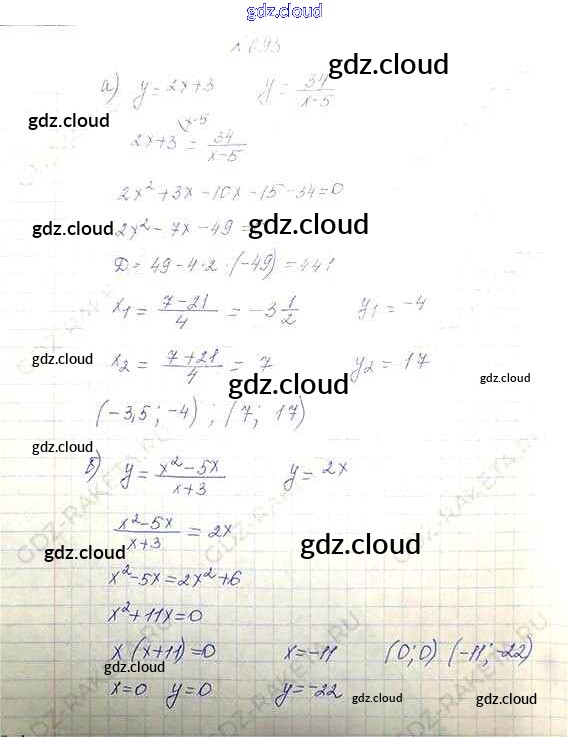 gdz.cloud
№ 695
gdz.cloud
а) y = 2x+3 y = 34/(x-5)
gdz.cloud
2x+3 \x-5 = 34/(x-5)
2x² + 3x - 10x - 15 - 34 = 0
gdz.cloud 2x² - 7x - 49 = gdz.cloud
D = 49 - 4·2·(-49) = 441
x1 = (7-21)/4 = -3 1/2 y1 = -4
gdz.cloud x2 = (7+21)/4 = 7 y2 = 17 gdz.cloud
gdz.cloud
(-3,5; -4); (7; 17)
gdz.cloud
б) y = (x²-5x)/(x+3) y = 2x
(x²-5x)/(x+3) = 2x
gdz.cloud gdz.cloud
x²-5x = 2x²+6
x²+11x=0
x(x+11)=0 x=-11 (0;0) (-11;-22)
gdz.cloud
x=0 y=0 y=-22 gdz.cloud gdz.cloud
GDZ-RAKETA.RU
GDZ-RAKETA.RU